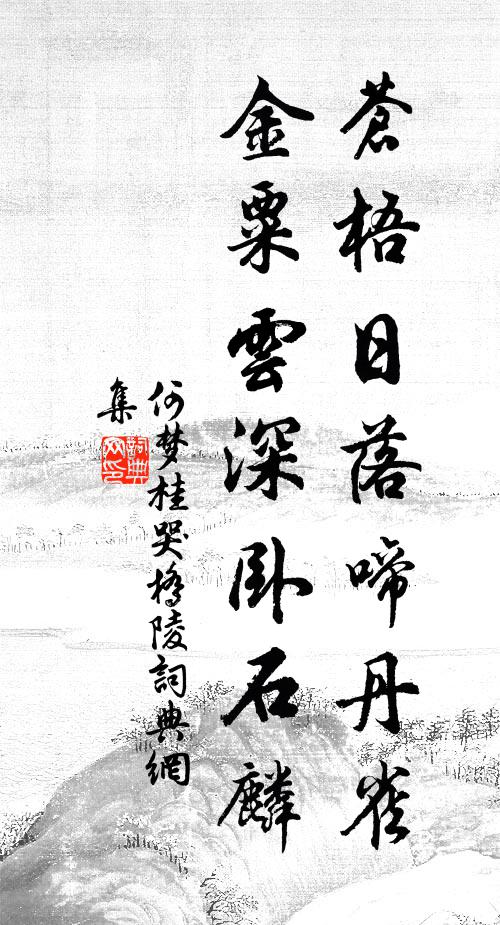 蒼梧日落啼丹雀
金粟雲深臥石麟
何梦桂哭橋陵詞典網
集
詞典
网印